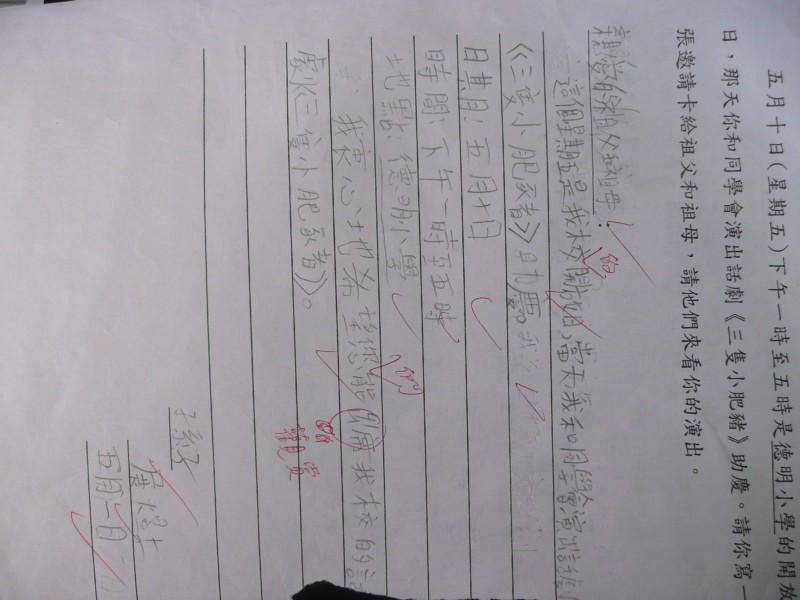 五月十日(星期五)下午一時至五時是德明小學的開放
日,那天你和同學會演出話劇《三隻小肥豬》助慶。請你寫一
張邀請卡給祖父和祖母,請他們來看你的演出。
親愛的祖父祖母:
這個星期五是我校開放日,當天我和同學會演出話劇
的
《三隻小肥豬》助慶。
日期:五月十日
時間:下午一時至五時
地點:德明小學
我衷心地希望您能到 我校的話
們
觀賞
劇《三隻小肥豬》。
孫子
五月一日